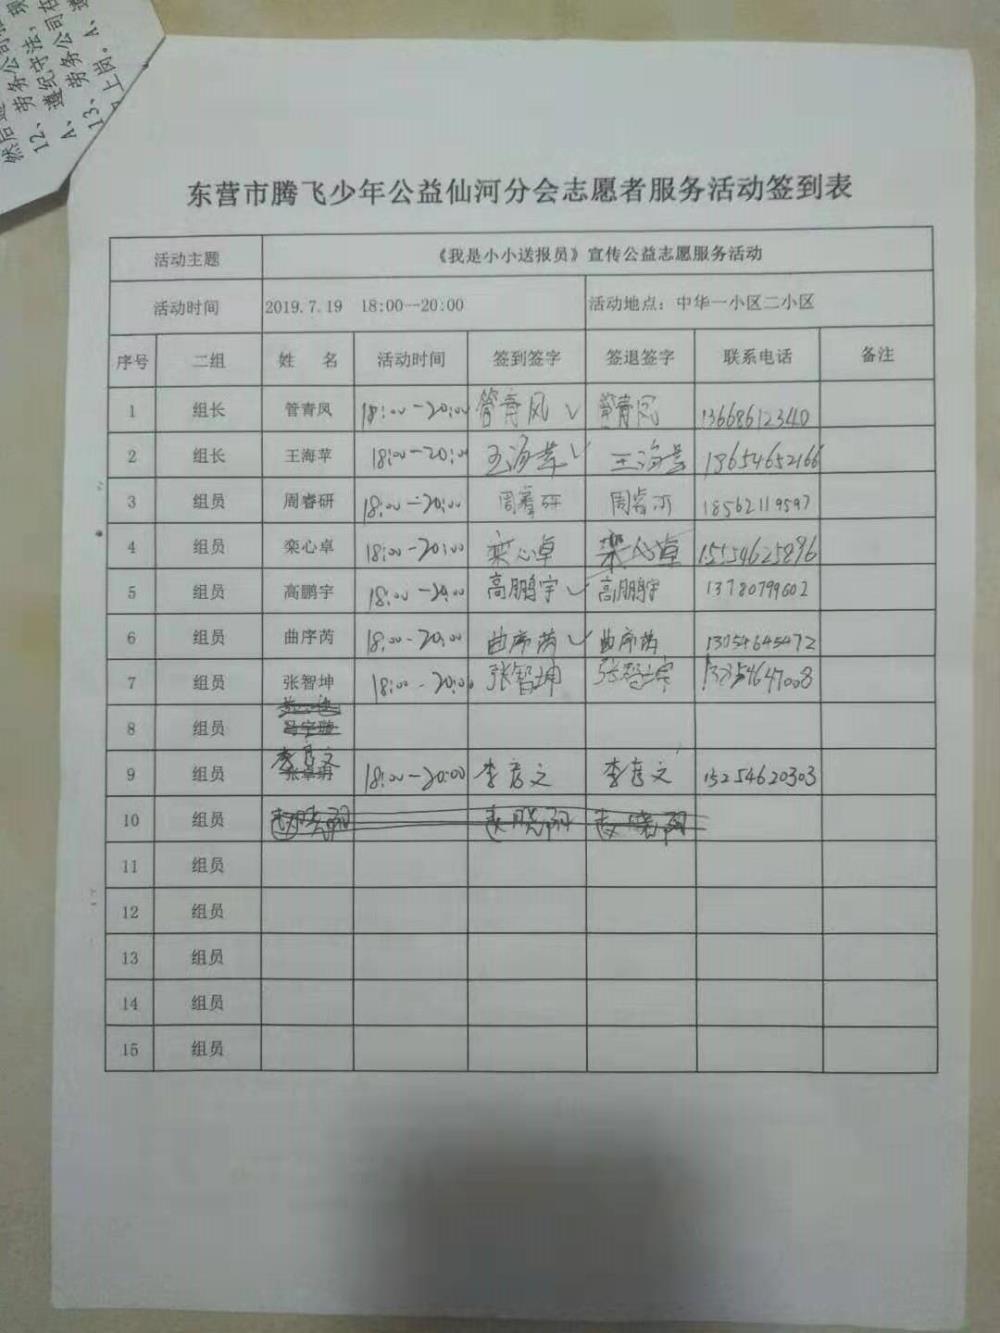 12、劳务公
A、遵纪守法，
劳务公司在
13、
上岗。A、遵
东营市腾飞少年公益仙河分会志愿者服务活动签到表
活动主题 《我是小小送报员》宣传公益志愿服务活动
活动时间 2019.7.19 18:00--20:00 活动地点：中华一小区二小区
序号 二组 姓 名 活动时间 签到签字 签退签字 联系电话 备注
1 组长 管青凤 18:00-20:00 管青凤 ✓ 管青凤 13668612340
2 组长 王海苹 18:00-20:00 王海苹 ✓ 王海苹 18654652166
3 组员 周睿研 18:00-20:00 周睿研 周睿研 18562119597
4 组员 栾心卓 18:00-20:00 栾心卓 栾心卓 15154625896
5 组员 高鹏宇 18:00-20:00 高鹏宇 ✓ 高鹏宇 13780799602
6 组员 曲序芮 18:00-20:00 曲序芮 ✓ 曲序芮 13054645472
7 组员 张智坤 18:00-20:00 张智坤 张智坤
8 组员 冯宇璇
9 组员 李彦文 18:00-20:00 李彦文 李彦文 15254620303
10 组员 赵晓阳 赵晓阳 赵晓阳
11 组员
12 组员
13 组员
14 组员
15 组员